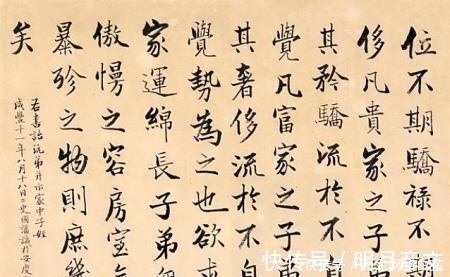 位不期驕祿不
侈凡貴家之子
其矜驕流於不
覺凡富家之子
其奢侈流於不
覺勢為之也欲求
家運綿長子弟無
傲慢之容房室無
暴殄之物則庶幾
矣
右書詒沅弟并示家中子姪
咸豐十一年八月十八日國藩識於安慶
快传号/明月